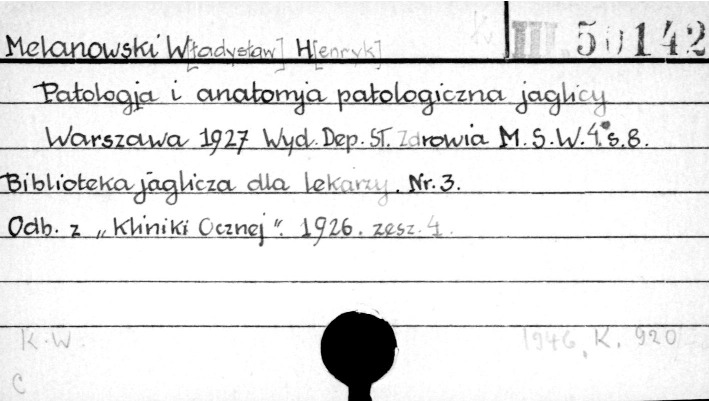 III 50142
Melanowski W[ładysław] H[enryk]
Patologja i anatomja patologiczna jaglicy
Warszawa 1927 Wyd. Dep. ST. Zdrowia M.S.W. 4° s. 8.
Biblioteka jaglicza dla lekarzy. Nr. 3.
Odb. z „Kliniki Ocznej". 1926. zesz. 4.
K.W.
1946. K. 920
C